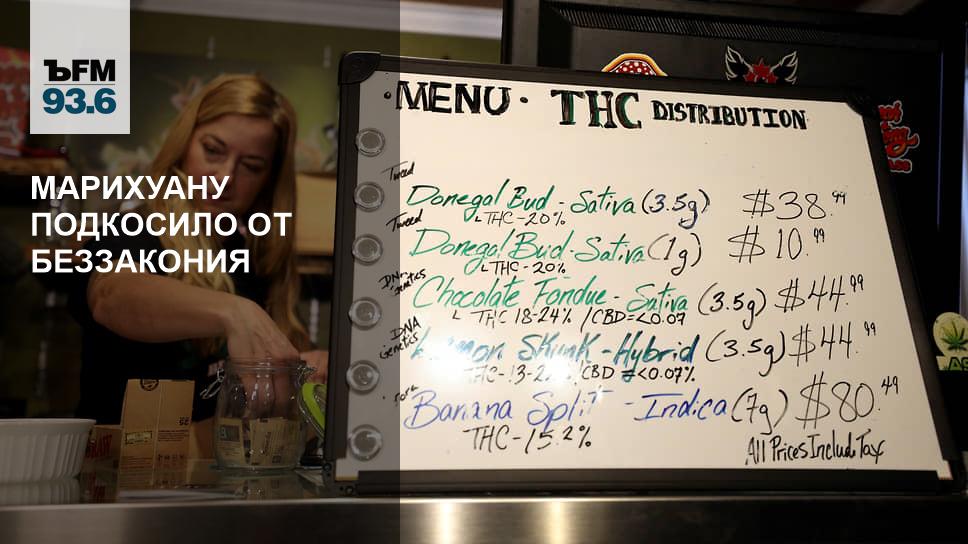 ЪFM
93.6
МАРИХУАНУ
ПОДКОСИЛО ОТ
БЕЗЗАКОНИЯ
·MENU· THC DISTRIBUTION
Tweed
Donegal Bud - Sativa (3.5g) $38.99
THC-20%
Tweed
Donegal Bud-Sativa (1g) $10.99
THC-20%
DNA genetics
Chocolate Fondue - Sativa (3.5g) $44.99
THC 18-24% / CBD=<0.07
DNA genetics
Lemon Skunk-Hybrid (3.5g) $44.99
CBD <0.07%
Banana Split - Indica (7g) $80.49
THC-15.2%
All Prices Include Tax